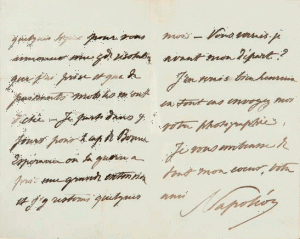 quelques lignes pour vous
annoncer une gde résolution
que j'ai prise et que de
puissants motifs m'ont
dictée — Je pars dans 9
jours pour le cap de Bonne
Espérance où la guerre a
pris une grande extension
et j'y resterai quelques
mois — Vous verrai-je
avant mon départ ?
J'en serais bien heureux
en tout cas envoyez moi
votre photographie.
Je vous embrasse de
tout mon cœur, votre
ami
Napoléon